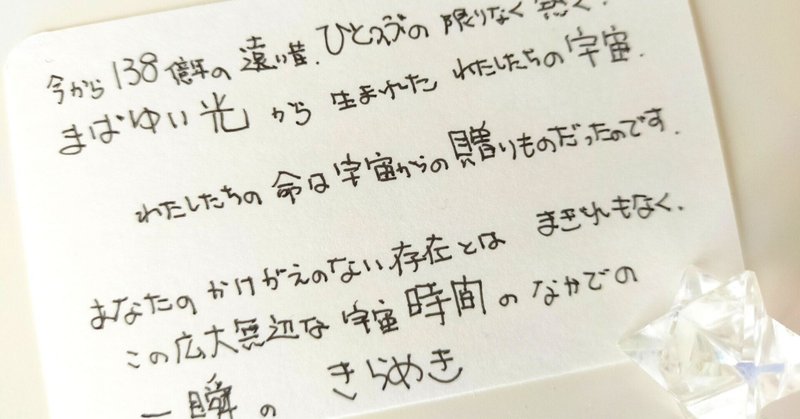 今から138億年の遠い昔.ひとつぶの限りなく熱く.
まばゆい光から生まれしたわたしたちの宇宙.
わたしたちの命は宇宙からの贈りものだったのです.
あなたのかけがえのない存在とはまぎれもなく.
この広大無辺な宇宙時間のなかでの
一瞬のきらめき